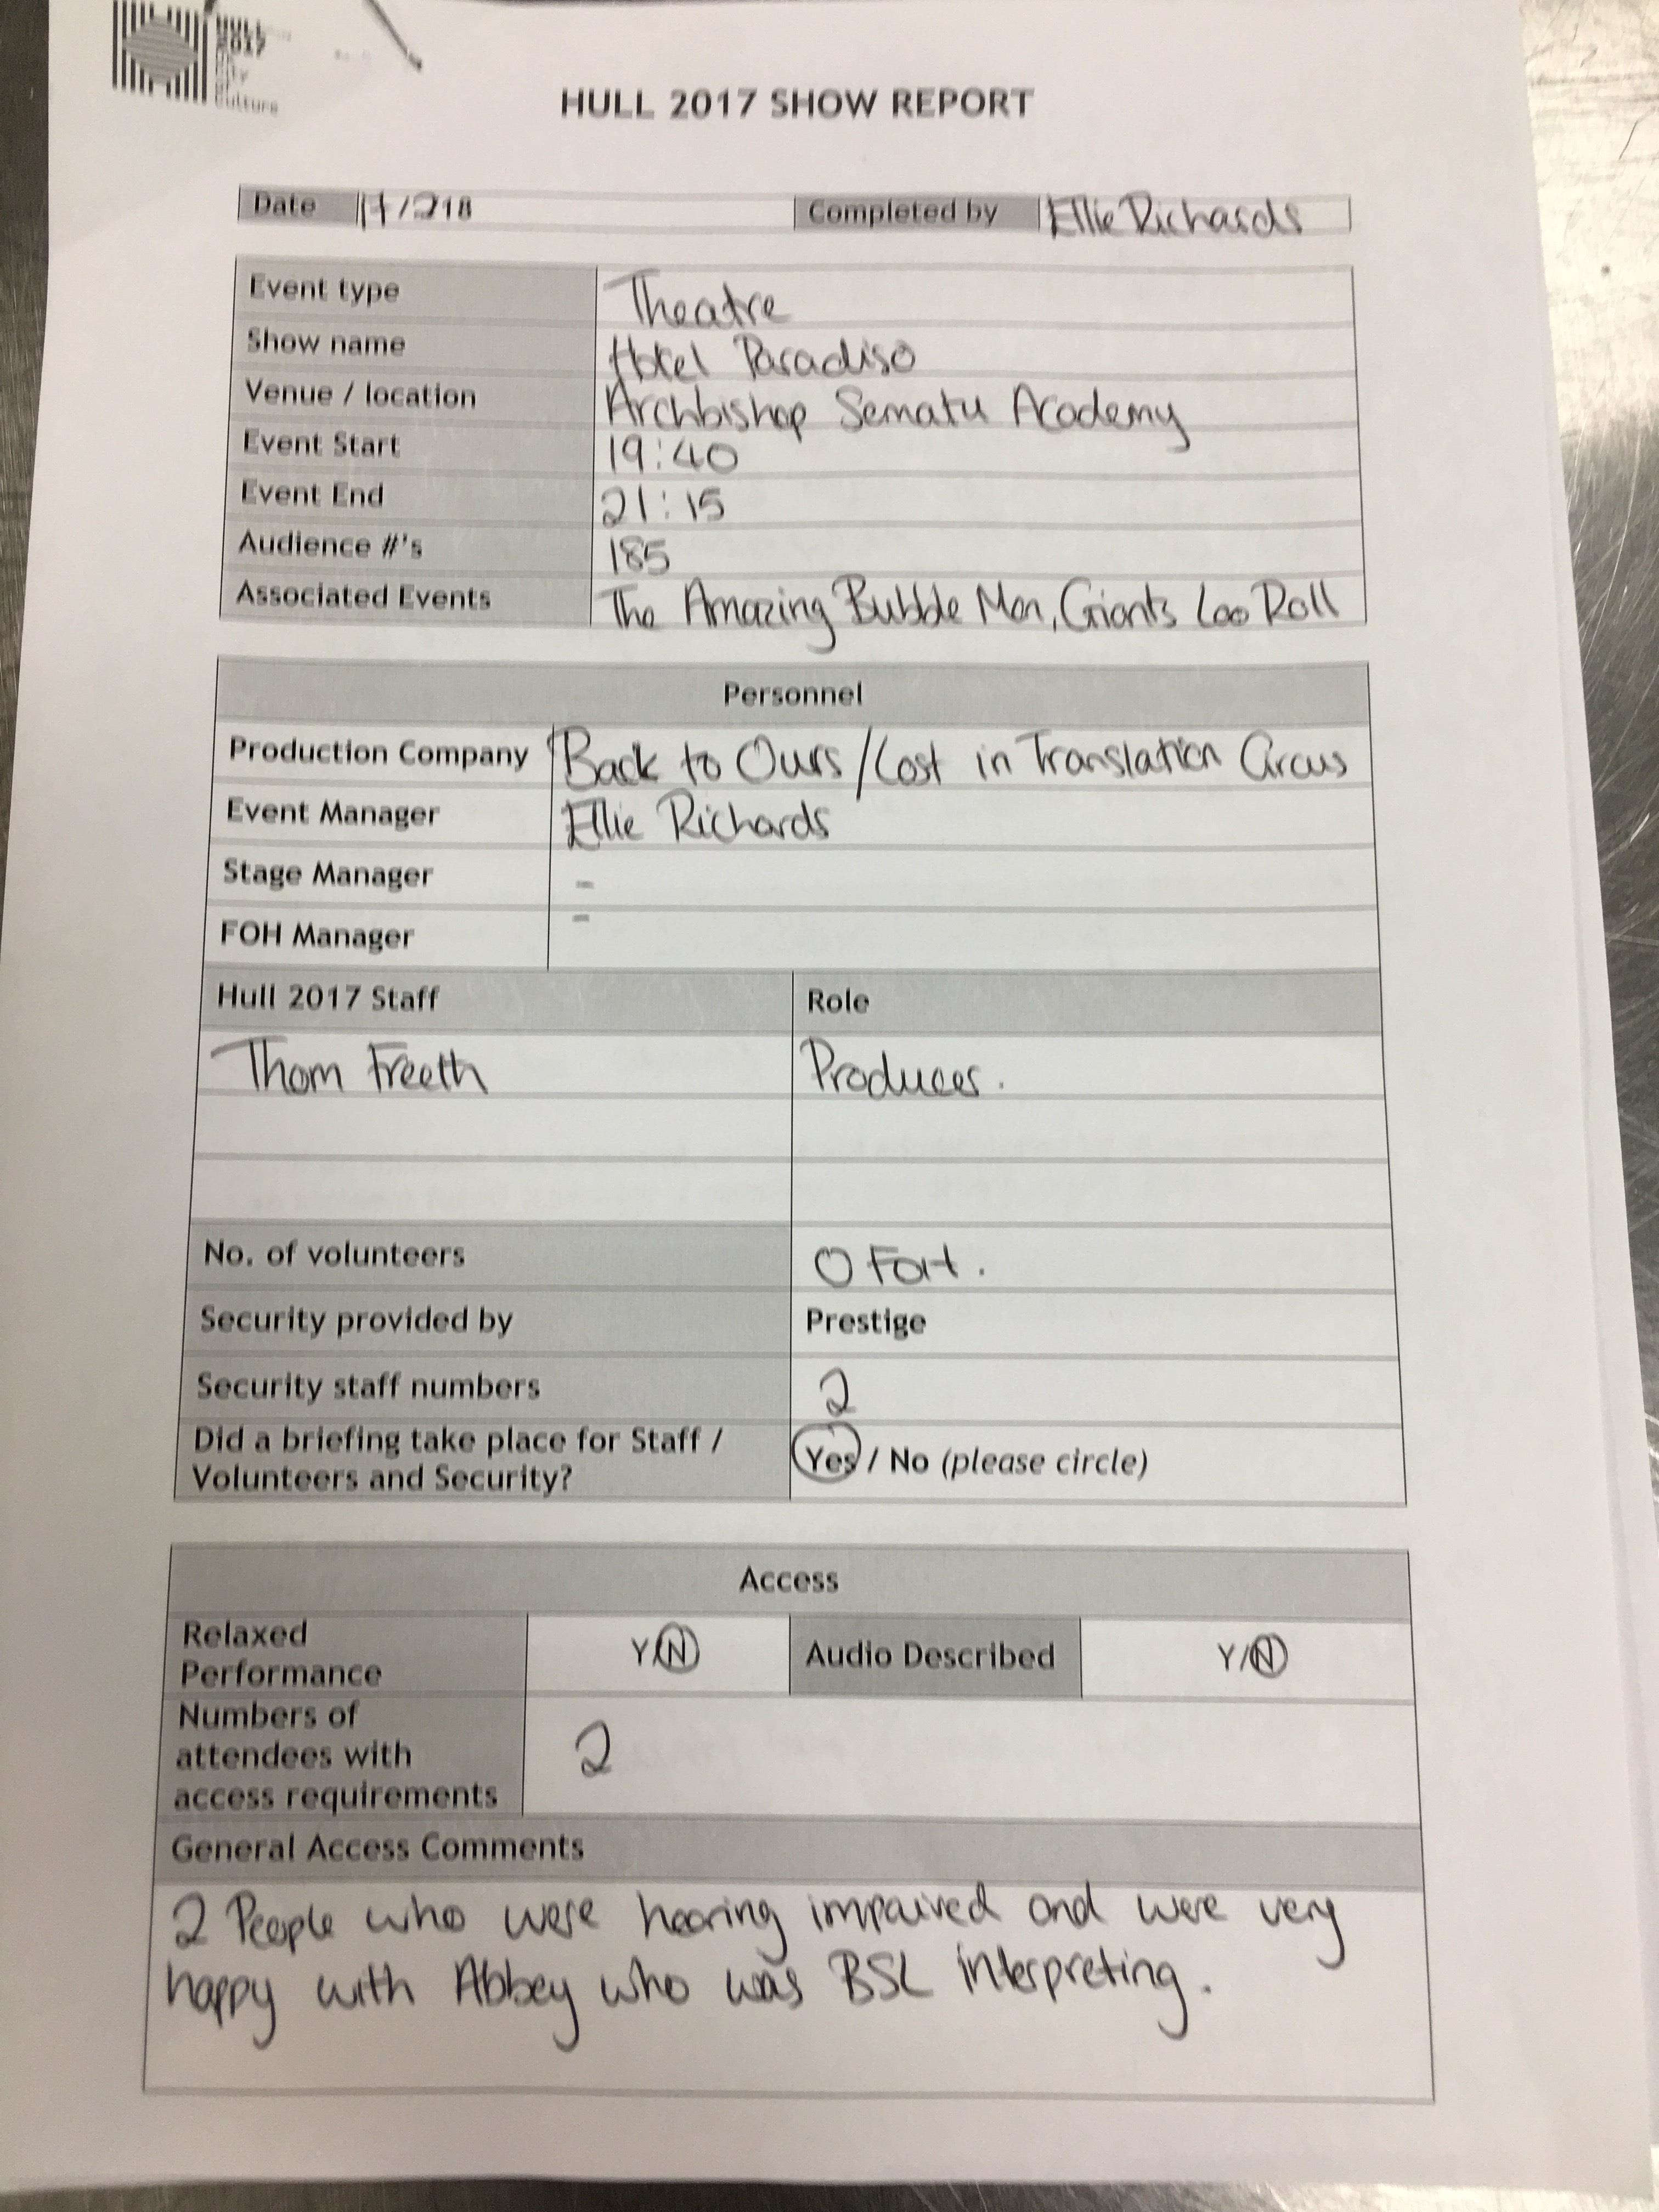 HULL
2017
UK
City
of
Culture
HULL 2017 SHOW REPORT
Date 17/218 Completed by Ellie Richards
Event type Theatre
Show name Hotel Paradiso
Venue / location Archbishop Sematu Academy
Event Start 19:40
Event End 21:15
Audience #'s 185
Associated Events The Amazing Bubble Man, Giants Loo Roll
Personnel
Production Company Back to Ours / Lost in Translation Circus
Event Manager Ellie Richards
Stage Manager -
FOH Manager -
Hull 2017 Staff Role
Thom Freeth Producer.
No. of volunteers 0
Security provided by Prestige
Security staff numbers 2
Did a briefing take place for Staff / Yes / No (please circle)
Volunteers and Security?
Access
Relaxed Y/N Audio Described Y/N
Performance
Numbers of
attendees with 2
access requirements
General Access Comments
2 People who were hearing impaired and were very
happy with Abbey who was BSL interpreting.